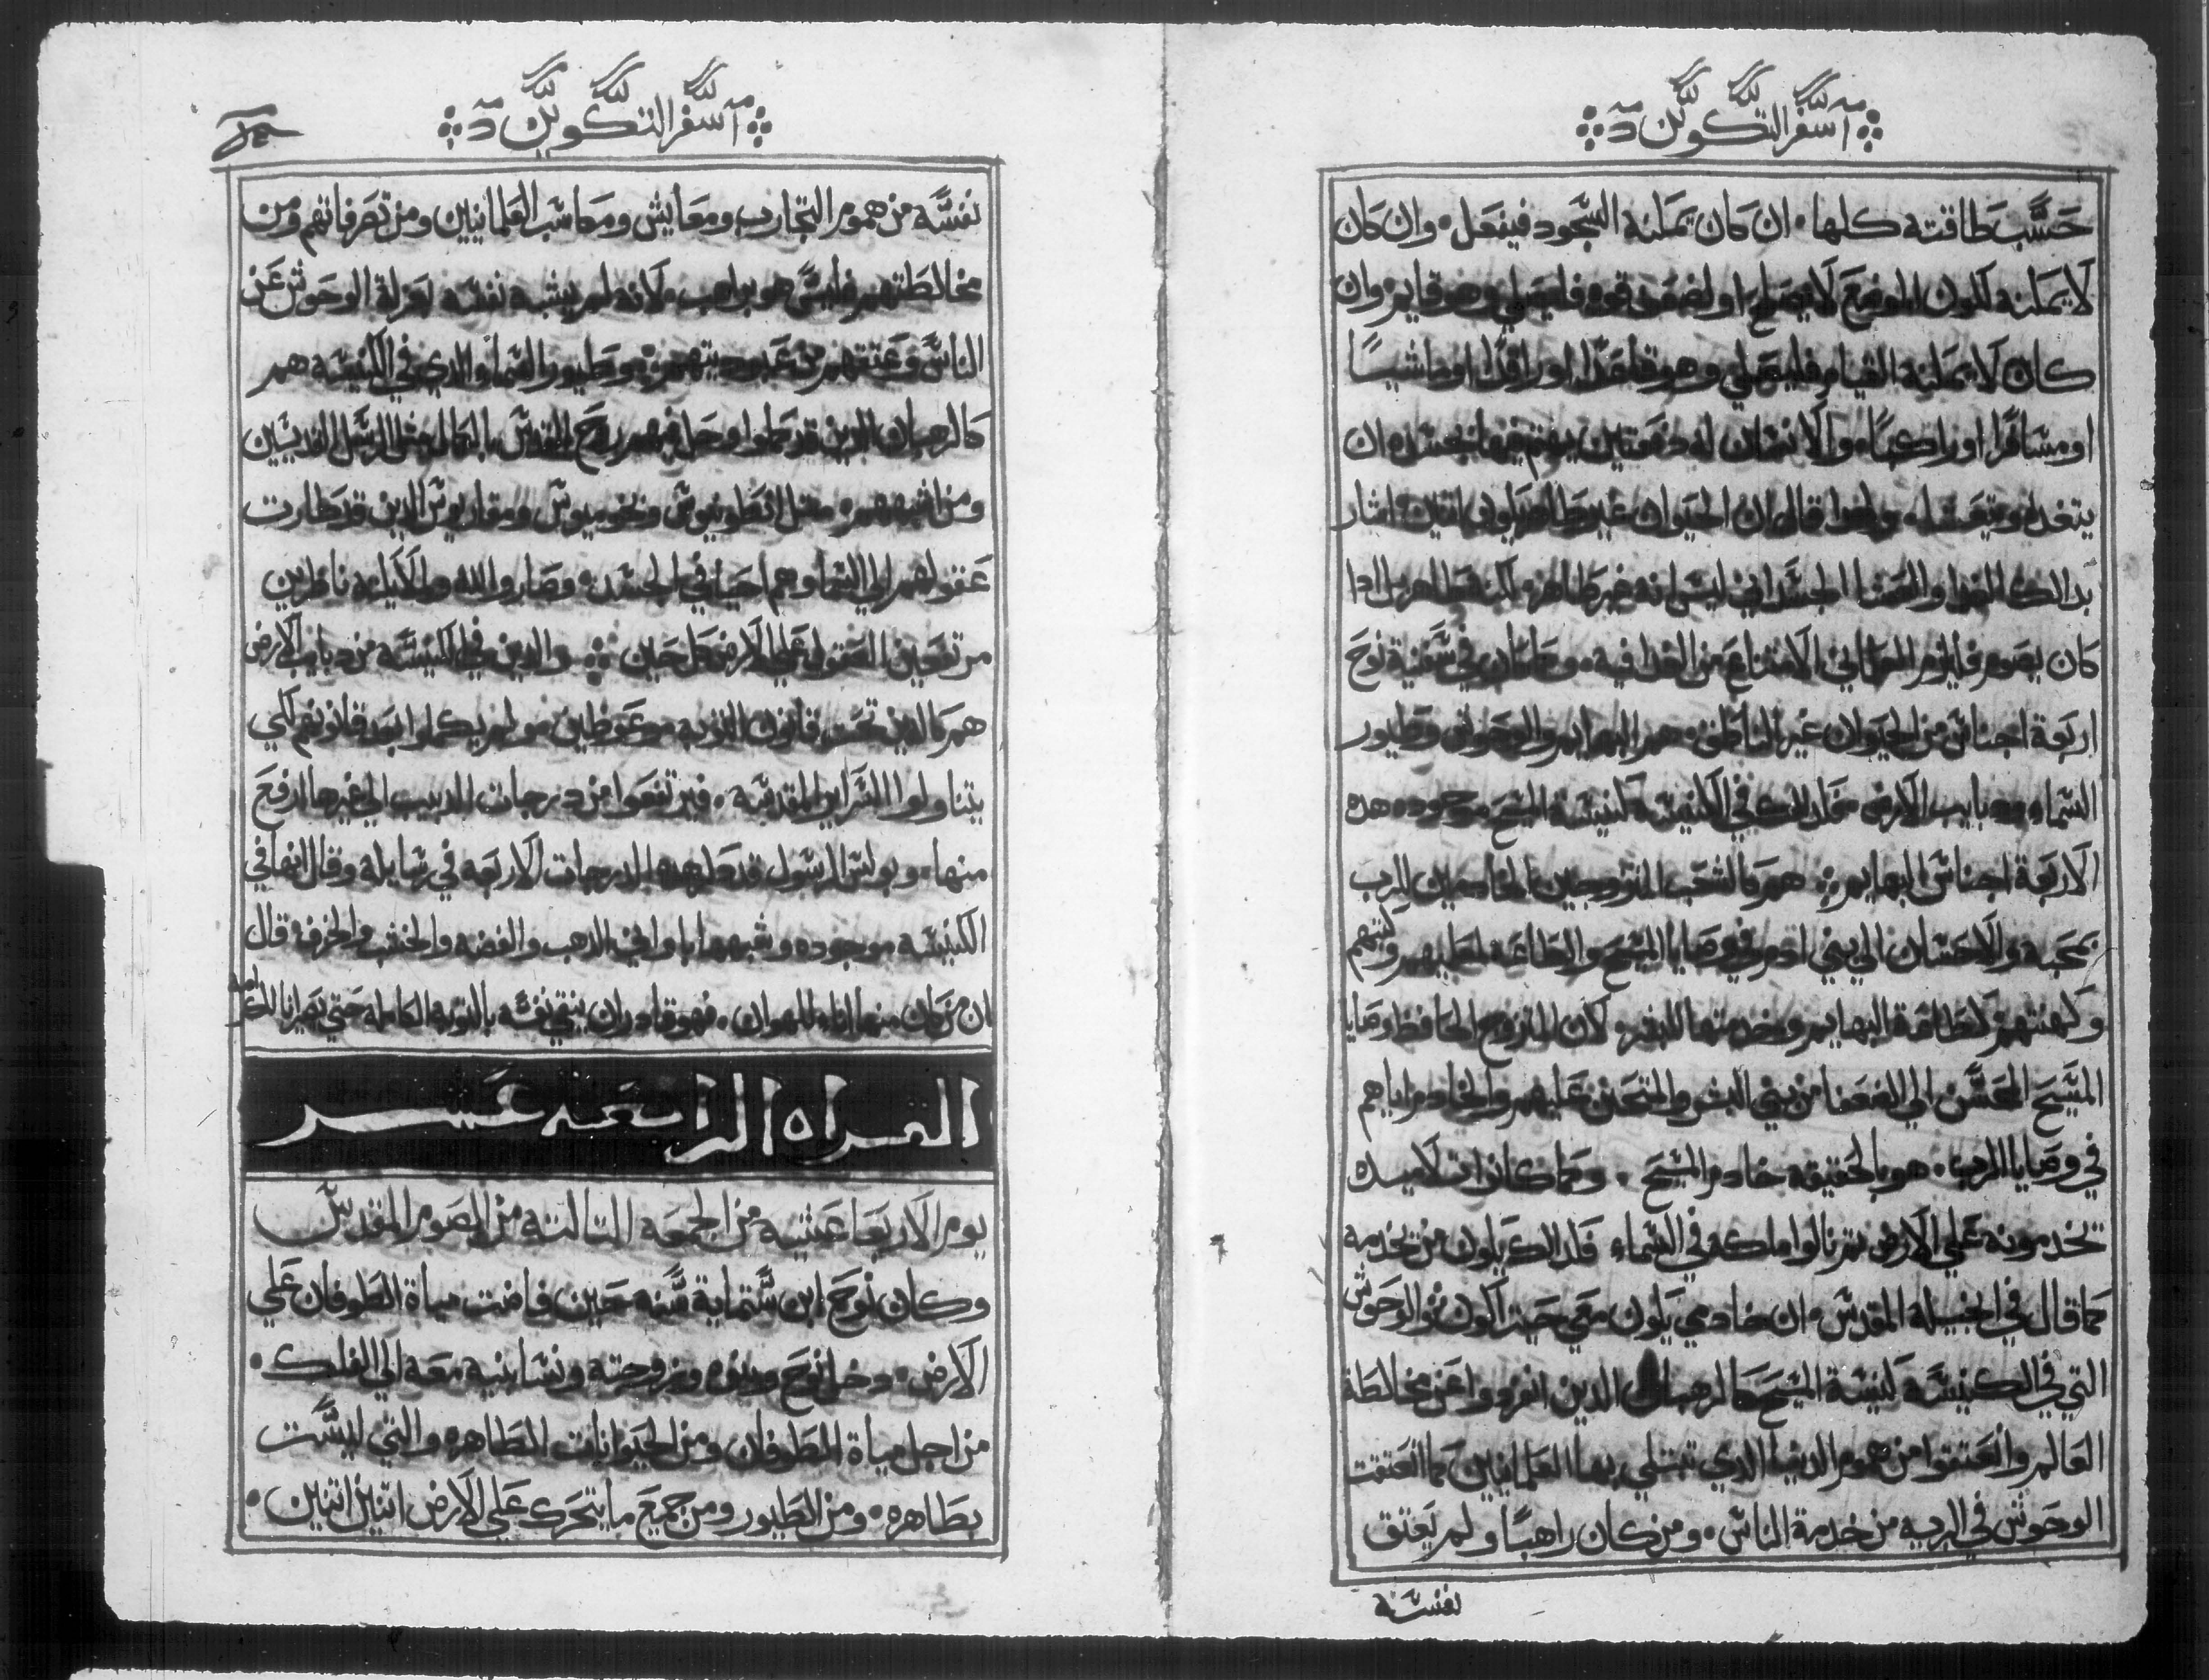 سفر التكوين
حسب طاقته كلها، ان كان يمكنه السجود فيفعل، وان كان
لا يمكنه لكون الموضع لا يصلح او لضعف قوه فليصلي وهو قايم وان
كان لا يمكنه القيام فليصلي وهو قاعدا او راقدا او ماشيا
او مسافرا او راكبا، والانسان له دفعتين يهتم فيها بجسده ان
يتغدا ويتعشا، ولهذا قال ان الحيوان غير طاهر اثنين اشار
بدالك الغدا والعشا الجسداني ليس انه غير طاهر لكنه طاهر بل ادا
كان يصوم فيلزم الامتناع من الغدا فيه، وكما كان في سفينة نوح
اربعة اجناس من الحيوان غير الناطق، هم البهايم والوحوش وطيور
السماء ودبابيب الارض فكدالك في الكنيسه كنيسة المسيح موجوده هده
الاربعة اجناس البهايم هم كالشعب المتزوجين الخادمين للرب
بمحبه والاحسان الى بني ادم وفي وصايا المسيح والطاعه لمعلميهم وكتبهم
وكهنتهم كطاعة البهايم وخدمتها للبشر، لان المتزوج الحافظ وصايا
المسيح المحسن الى الضعفا من بني البشر والمتحنن عليهم والخادم اياهم
في وصايا الرب، هو بالحقيقه خادم المسيح، وكما كانوا تلاميده
تخدمونه على الارض ثم نالوا ملكه في السماء فكدالك يكون من يخدمه
كما قال في انجيله المقدس، ان خادمي يكون معي حيث اكون والوحوش
التي في الكنيسة كنيسة المسيح كالرهبان الدين انفردوا عن مخالطة
العالم وانعتقوا من هموم الدنيا الدي تبتلي بها العلمانيين كما انعتقت
الوحوش في البريه من خدمة الناس، ومن كان راهبا ولم يعتق
نفسه
سفر التكوين
نفسه من هموم التجارب ومعايش ومكاسب العلمانيين ومن تصرفاتهم ومن
مخالطتهم فليس هو براهب، لانه لم يشبه نفسه لعزلة الوحوش عن
الناس وعتقهم من عبوديتهم، وطيور السما والدي في الكنيسه هم
كالرهبان الدين قد كملوا وحل فيهم روح القدس بالكمال مثل الرسل القديسين
ومن اشبههم، مثل انطونيوس وبخوميوس ومقاريوس الدين قد طارت
عقولهم الي السما وهم احيا في الجسد، وصاروا لله والملايكه ناظرين
مرتفعين العقول علي الارض كل حين، والدين في الكنيسه من دبابيب الارض
هم كالدين تحت قانون التوبه موعوظين ولم يكملوا بعد قانونهم لكي
يتناولوا السراير المقدسه، فيرتفعوا من درجات الدبيب الي غيرها ارفع
منها، وبولس الرسول قد جعل هده الدرجات الاربعه في رسايله وقال انها في
الكنيسه موجوده وشبهها باواني الدهب والفضه والخشب والخزف قال
ان من كان منها اناء للهوان، فهو قادر ان ينقي نفسه بالتوبه الكامله حتي يصير انا للكرامه
القراه الرابعه عشر
يوم الاربعا عشيه من الجمعه التالتة من الصوم المقدس
وكان نوح ابن ستماية سنه حين فاضت مياة الطوفان علي
الارض، دخل نوح وبنوه وزوجته ونسا بنيه معه الي الفلك،
من اجل مياة الطوفان ومن الحيوانات الطاهره والتي ليست
بطاهره، ومن الطيور ومن جميع ما يتحرك علي الارض اتنين اتنين،